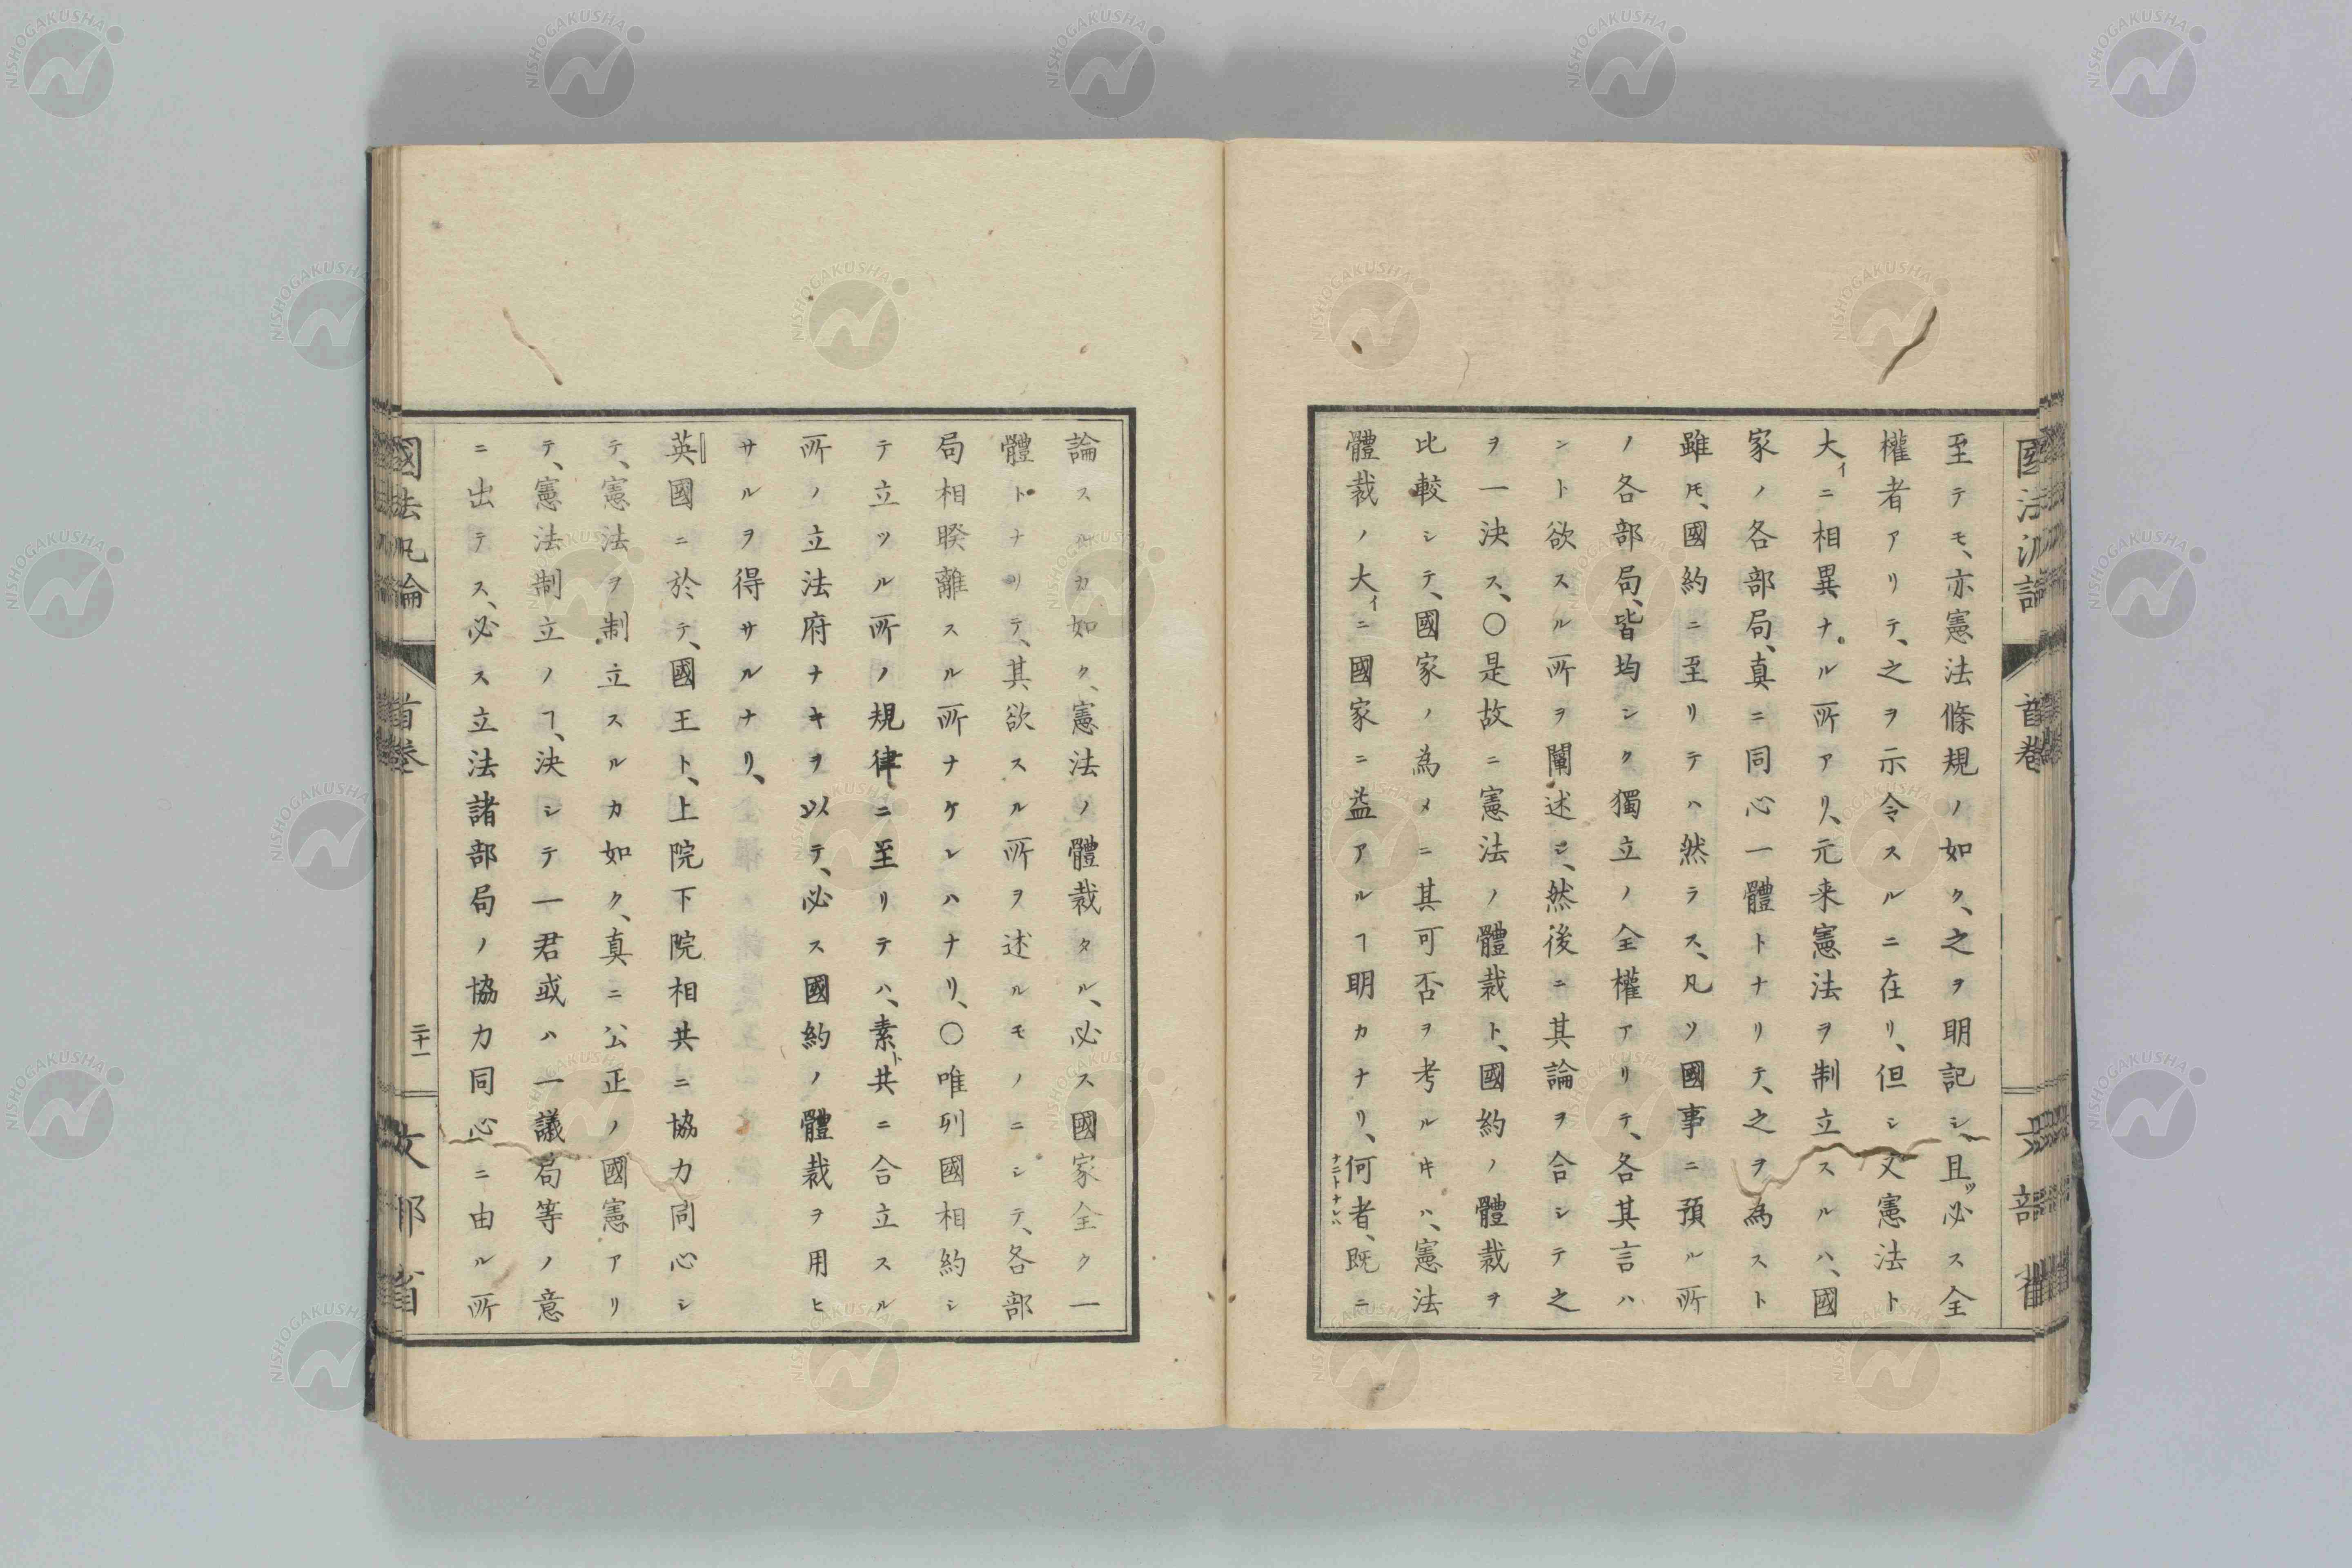 至テモ、亦憲法條規ノ如ク、之ヲ明記シ、且ッ必ス全
權者アリテ、之ヲ示令スルニ在リ、但シ又憲法ト
大イニ相異ナル所アリ、元来憲法ヲ制立スルハ、國
家ノ各部局、真ニ同心一體トナリテ、之ヲ為スト
雖𪜈、國約ニ至リテハ然ラス、凡ソ國事ニ預ル所
ノ各部局、皆均シク獨立ノ全權アリテ、各其言ハ
ント欲スル所ヲ闡述シ、然後ニ其論ヲ合シテ之
ヲ一決ス、〇是故ニ憲法ノ體裁ト、國約ノ體裁ヲ
比較シテ、國家ノ為メニ其可否ヲ考ルキハ、憲法
體裁ノ大イニ國家ニ益アルヿ明カナリ、何者、既ニ
ナニトナレハ
國法汎論
首卷
文部省
論スルカ如ク、憲法ノ體裁タル、必ス國家全ク一
體トナリテ、其欲スル所ヲ述ルモノニシテ、各部
局相暌離スル所ナケレハナリ、〇唯列國相約シ
テ立ツル所ノ規律ニ至リテハ、素ト共ニ合立スル
所ノ立法府ナキヲ以テ、必ス國約ノ體裁ヲ用ヒ
サルヲ得サルナリ、
英國ニ於テ、國王ト、上院下院相共ニ協力同心シ
テ、憲法ヲ制立スルカ如ク、真ニ公正ノ國憲アリ
テ、憲法制立ノヿ、決シテ一君或ハ一議局等ノ意
ニ出テス、必ス立法諸部局ノ協力同心ニ由ル所
國法汎論
首卷
二十一
文部省
NISHOGAKUSHA